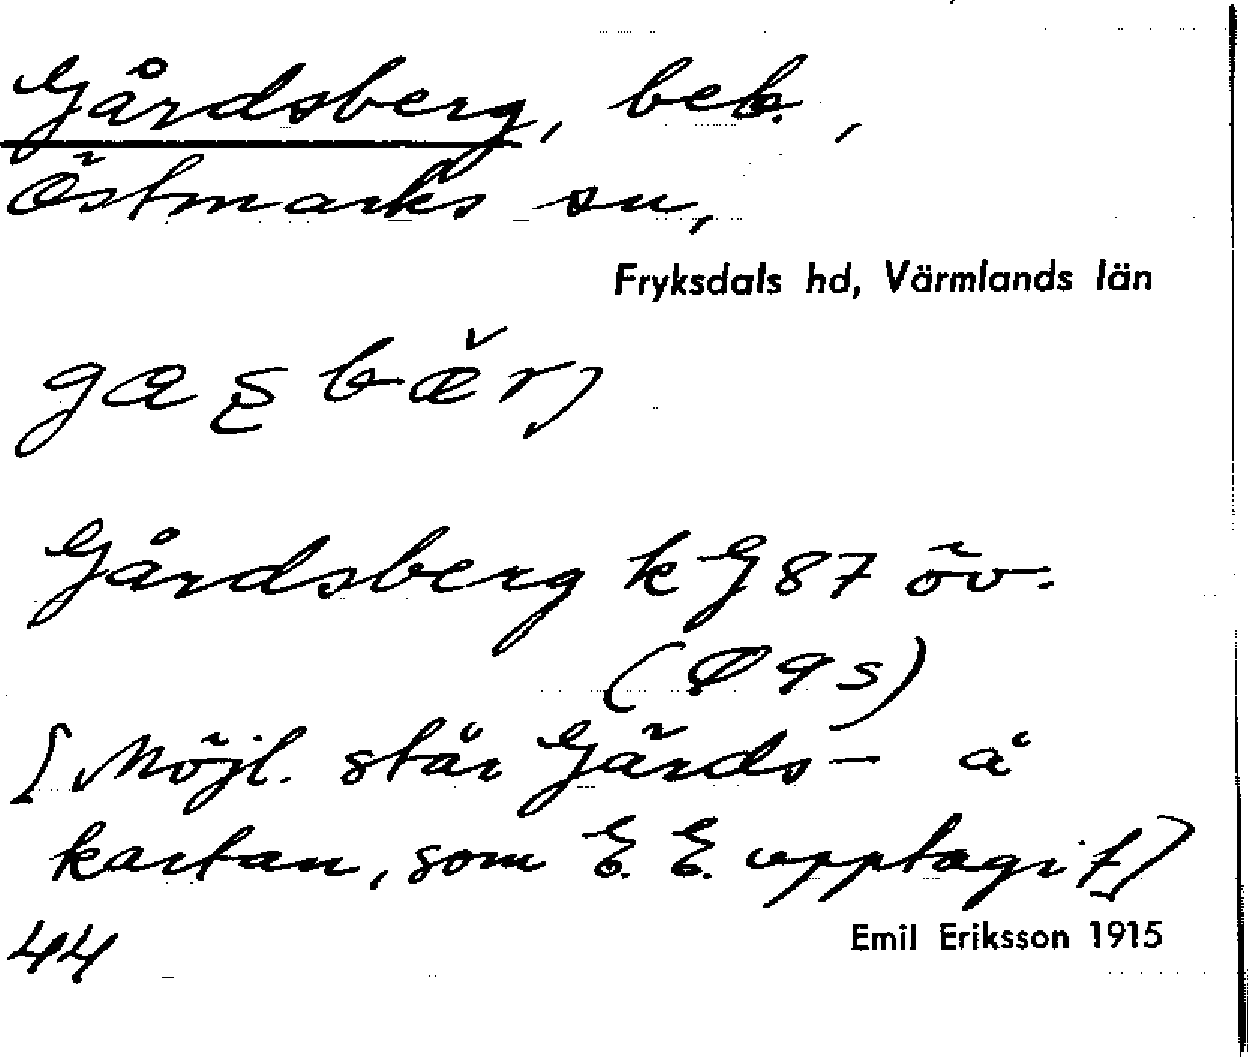 Gårdsberg, beb.,
Östmarks sn,
Fryksdals hd, Värmlands län
Gårdsberg k G 87 öv.
(Ö 9 s)
[Möjl. står Gärds- å
kartan, som E. E. upptagit]
44
Emil Eriksson 1915